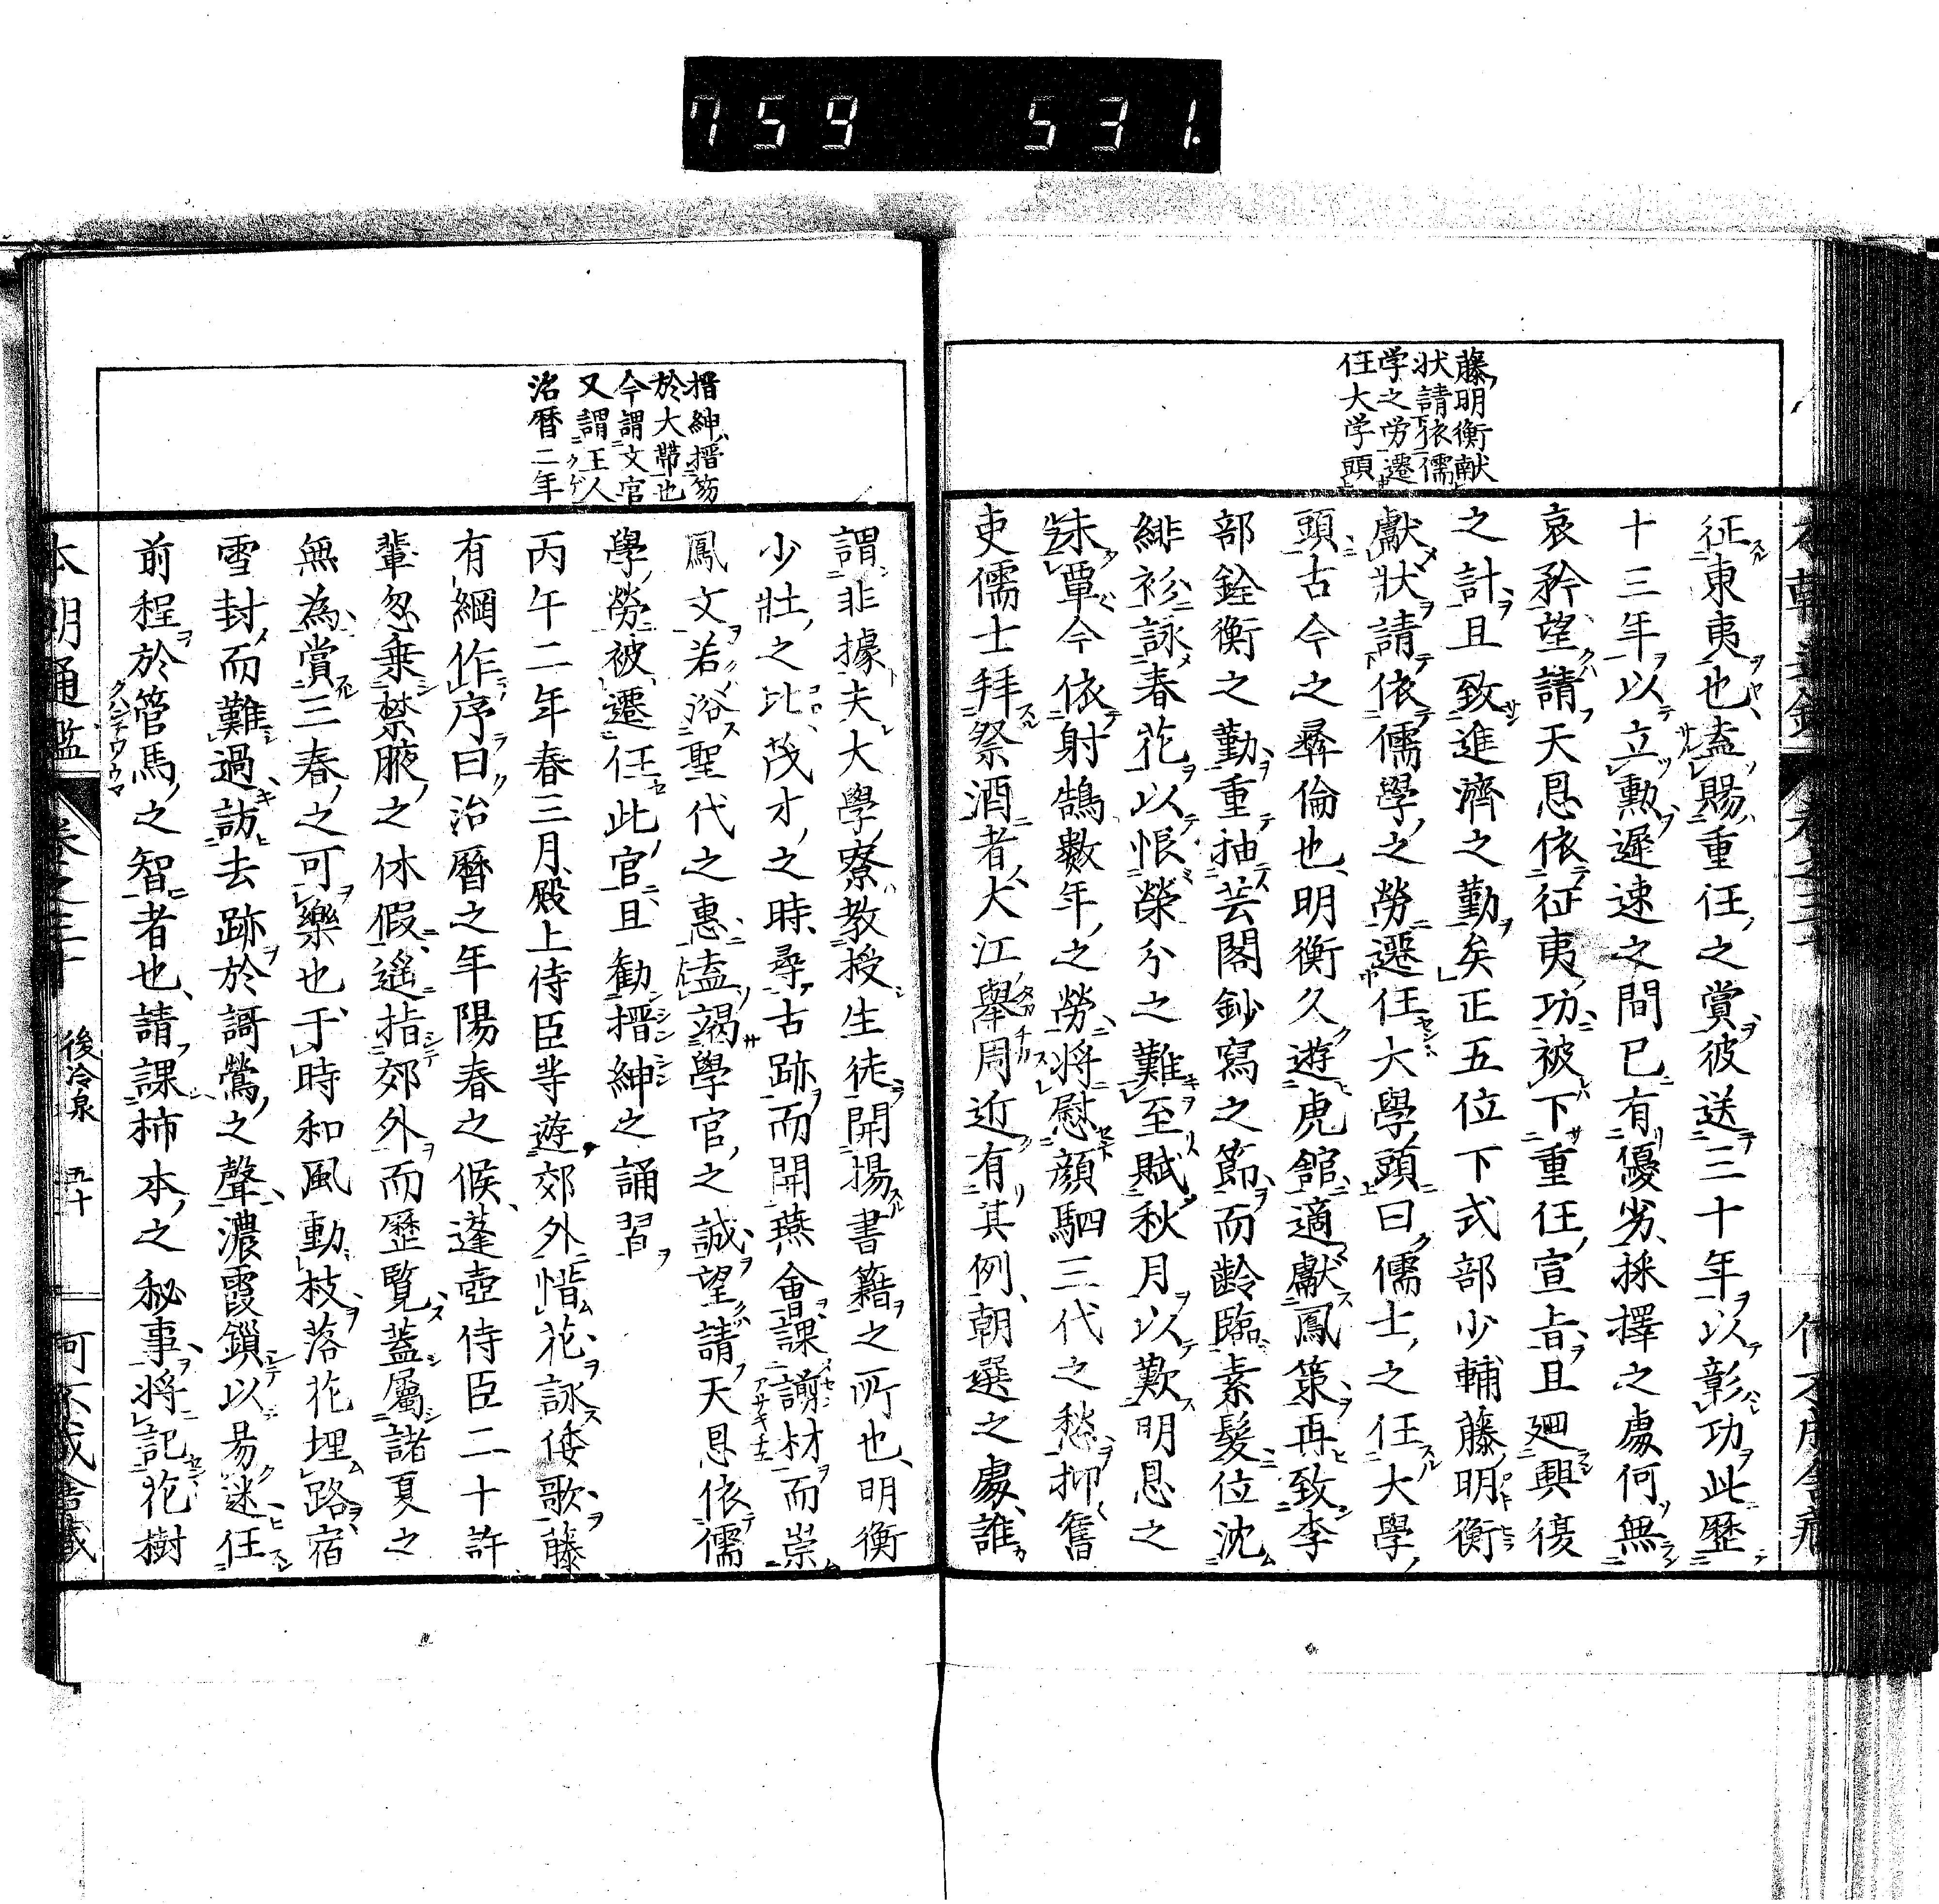 759 531.
藤明衡献
状請依儒
学之労遷
任大学頭
征東夷也、盍賜重任之賞、彼送三十年以彰功、此歴
十三年以立勲、遲速之間已有優劣、採擇之處何無
哀矜、望請天恩依征夷功、被下重任宣旨、且廻興復
之計、且致進濟之勤矣、正五位下式部少輔藤明衡
獻狀請依儒學之勞遷任大學頭曰、儒士之任大學
頭、古今之彜倫也、明衡久遊虎館、適獻鳳策、再致李
部銓衡之勤、重抽芸閣鈔寫之節、而齡臨素髮、位沈
緋衫、詠春花以悵榮分之難至、賦秋月以歎明恩之
未覃、今依射鵠數年之勞、將慰顏駟三代之愁、抑舊
吏儒士拜祭酒者、大江擧周近有其例、朝選之處、誰
搢紳、搢笏
於大帶也
今謂文官
又謂王人
治暦二年
謂非據、夫大學寮教授生徒、開揚書籍之所也、明衡
少壯之比、茂才之時、尋古跡而開燕會、課諏材而崇
鳳文、若浴聖代之惠、盍竭學官之誠、望請天恩依儒
學勞被遷任此官、且勸搢紳之誦習、
丙午二年春三月、殿上侍臣等遊郊外、惜花詠倭歌、藤
有綱作序曰、治暦之年陽春之候、蓬壺侍臣二十許
輩、忽乗禁腋之休假、遥指郊外而歷覽、蓋屬諸夏之
無為、賞三春之可樂也、于時和風動枝、落花埋路、宿
雪封而難過、訪去跡於謌鶯之聲、濃霞鎖以易迷、任
前程於管馬之智者也、請課柿本之秘事、將記花樹
本朝通鑑 卷之三十 後冷泉 五十